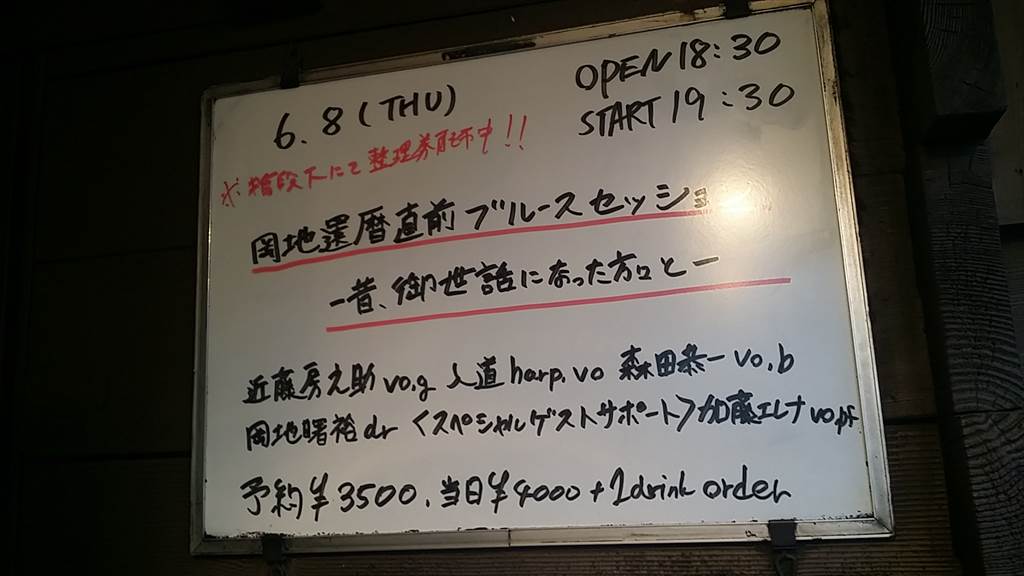 6.8(THU)
OPEN 18:30
START 19:30
※階段下にて整理券配布中!!
岡地還暦直前ブルースセッショ
ー昔、御世話になった方々とー
近藤房之助 vo.g 入道 harp.vo 森田恭一 vo.b
岡地曙裕 dr 〈スペシャルゲストサポート〉加藤エレナ vo,pf
予約¥3500、当日¥4000+1drink order